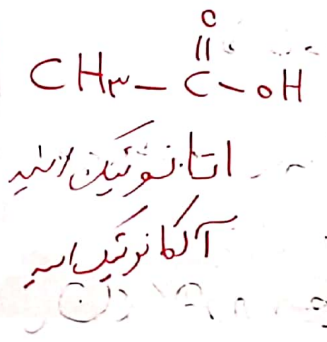 O
||
CH۳ – C – OH
اتانوئیک اسید
آلکانوئیک اسید